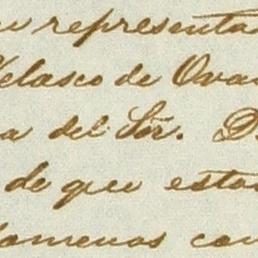 representa
Velasco de Ovan
a del Sór. D.
de que estan
lomenos con